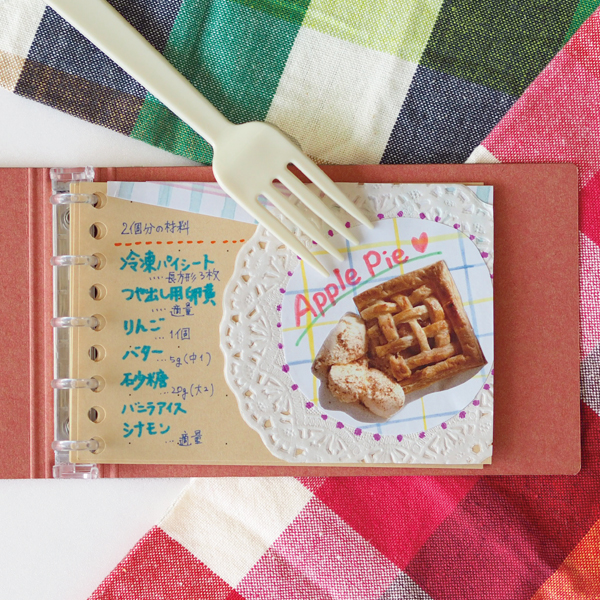 2個分の材料
冷凍パイシート
....長方形3枚
つや出し用卵黄
....適量
りんご
...1個
バター
...5g(中1)
砂糖
...20g(大2)
バニラアイス
シナモン
...適量
Apple Pie